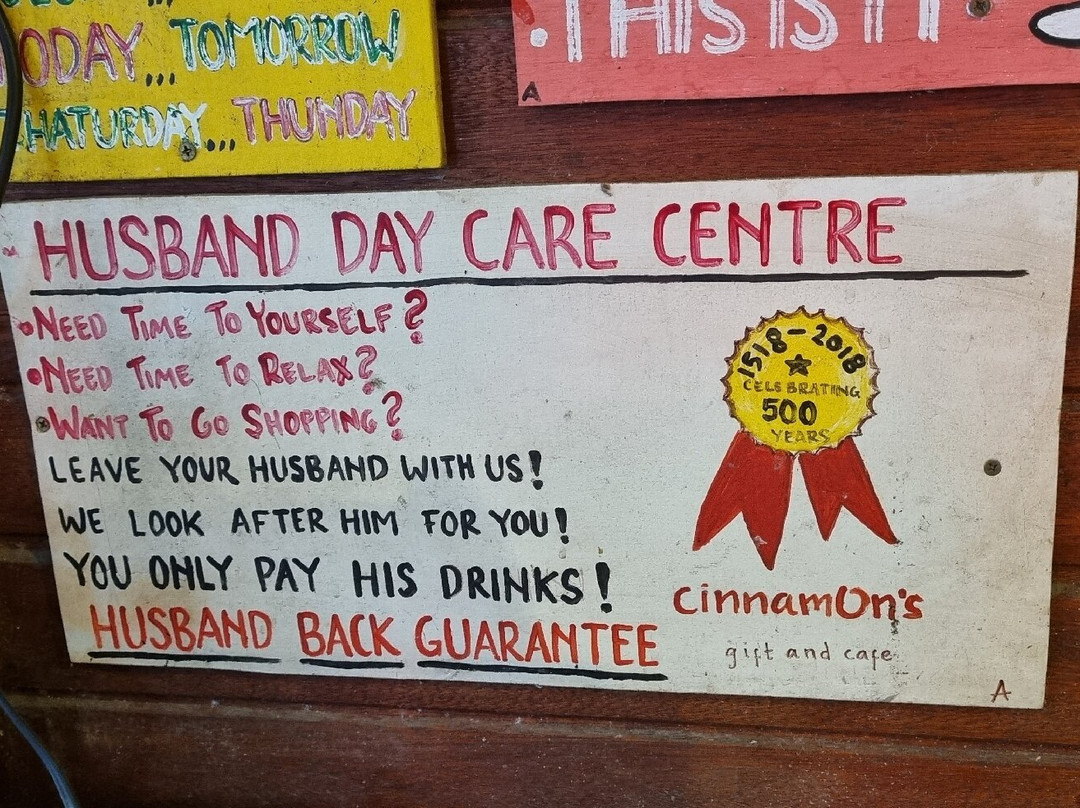 TODAY... TOMORROW
THATURDAY... THUNDAY
THIS IS IT
A
HUSBAND DAY CARE CENTRE
• NEED TIME TO YOURSELF?
• NEED TIME TO RELAX?
• WANT TO GO SHOPPING?
LEAVE YOUR HUSBAND WITH US!
WE LOOK AFTER HIM FOR YOU!
YOU ONLY PAY HIS DRINKS!
HUSBAND BACK GUARANTEE
1518-2018
CELEBRATING
500
YEARS
cinnamOn's
gift and cafe
A